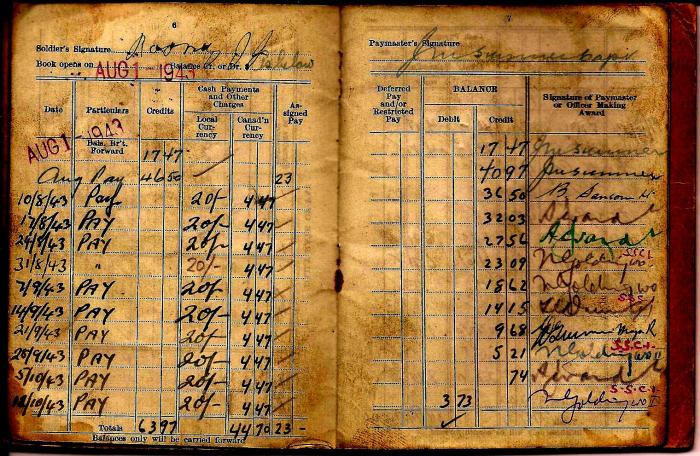 6
Soldier's Signature
Book opens on AUG 1 - 1943 Balance Cr. or Dr.
Date Particulars Credits Cash Payments and Other Charges Local Currency Canad'n Currency Assigned Pay
AUG 1 - 1943 Bals. Br't. Forward 17 47
Aug Pay 46 50 23
10/8/43 Pay 20/- 4 47
17/8/43 PAY 20/- 4 47
24/8/43 PAY 20/- 4 47
31/8/43 " 20/- 4 47
7/9/43 PAY 20/- 4 47
14/9/43 PAY 20/- 4 47
21/9/43 PAY 20/- 4 47
28/9/43 PAY 20/- 4 47
5/10/43 PAY 20/- 4 47
12/10/43 PAY 20/- 4 47
Totals 63 97 44 70 23 -
Balances only will be carried forward
7
Paymaster's Signature
Deferred Pay and/or Restricted Pay BALANCE Debit Credit Signature of Paymaster or Officer Making Award
17 47
40 97
36 50
32 03
27 56
23 09 S.S.C.1.
18 62
14 15
9 68
5 21 S.S.C.1.
74
3 73 S.S.C.1.